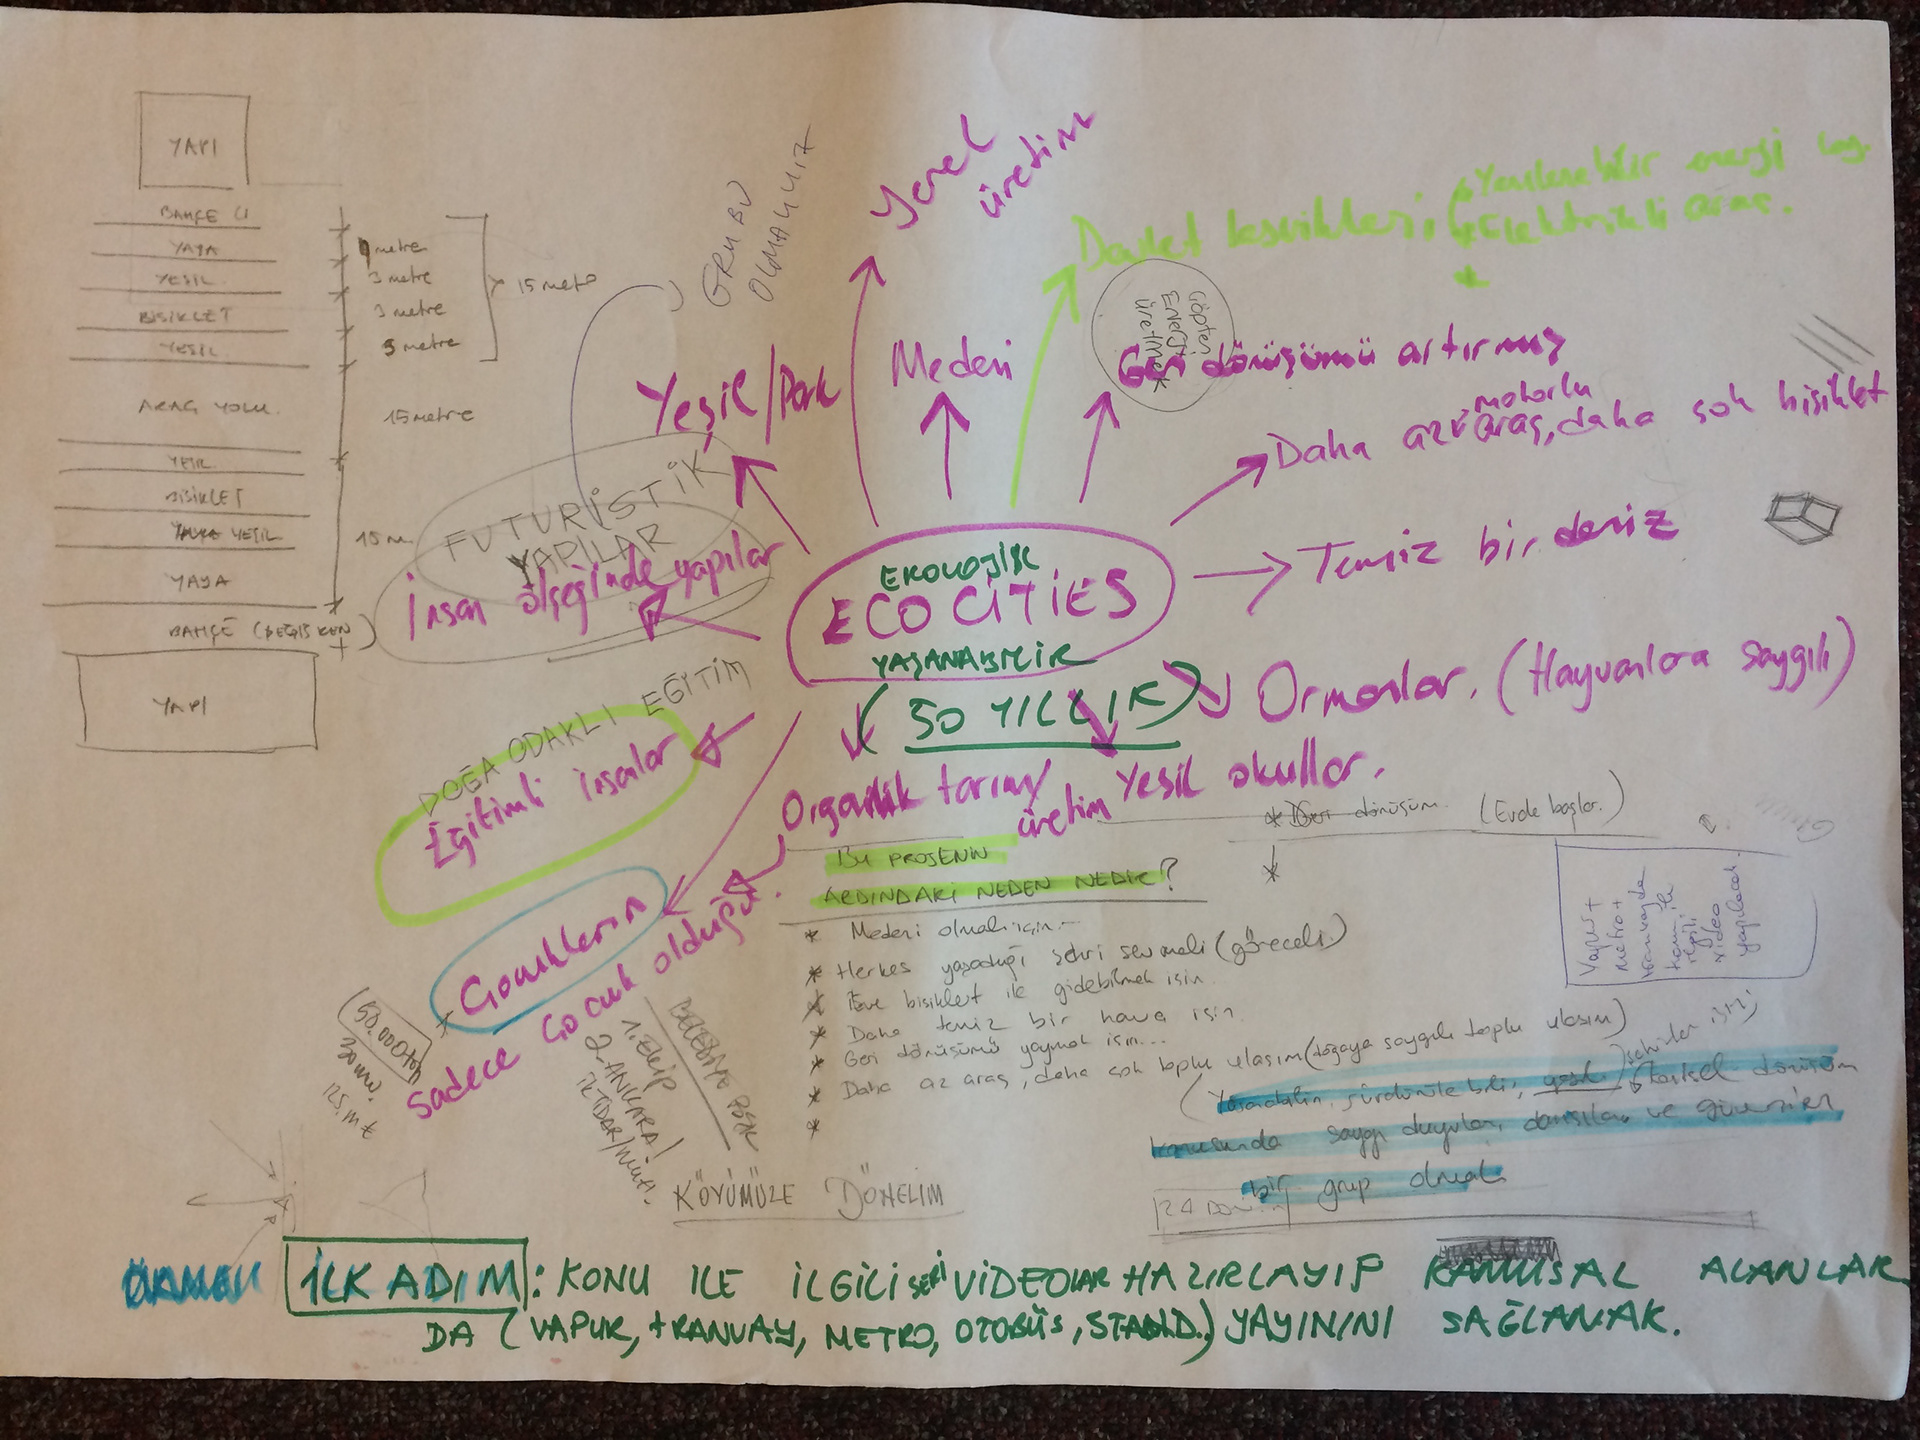 YAPI
BAHÇE
YAYA
YEŞİL
BİSİKLET
YEŞİL
ARAÇ YOLU
YEŞİL
BİSİKLET
YEŞİL
YAYA
BAHÇE (DEĞİŞKEN)
YAPI
metre
3 metre
3 metre
metre
15 metre
15 metre
15 m
GRUBU
OLMALIYIZ
Yerel
üretim
Devlet teşvikleri
Yenilenebilir enerji
Elektrikli araç.
Çöpten
Enerji
üretmek
Yeşil/Park
Medeni
Geri dönüşümü artırmış
Daha az motorlu araç, daha çok bisiklet
Temiz bir deniz
FUTURİSTİK
YAPILAR
İnsan ölçeğinde yapılar
EKOLOJİK
ECO CİTİES
YAŞANABİLİR
(50 YILLIK)
Ormanlar. (Hayvanlara saygılı)
DOĞA ODAKLI EĞİTİM
Eğitimli insanlar
Organik tarım/
üretim
Yeşil okullar.
* Geri dönüşüm. (Evde başlar.)
*
Çocukların
sadece çocuk olduğu.
50.000 ton
BU PROJENİN
ARDINDAKİ NEDEN NEDİR?
* Medeni olmak için...
* Herkes yaşadığı şehri sevmeli (göreceli)
* Eve bisiklet ile gidebilmek için.
* Daha temiz bir hava için.
* Geri dönüşümü yaymak için...
* Daha az araç, daha çok toplu ulaşım (doğaya saygılı toplu ulaşım)
*
Vapur +
metro +
tramvayda
konu ile
ilgili
video
yapılacak.
sürdürülebilir, yeşil) dönüşüm
konusunda saygı duyulan, danışılan ve güvenilen
bir grup olmak
BELEDİYE
1. EKİP
2. ANKARA/
İKTİDAR/
KÖYÜMÜZE DÖNELİM
İLK ADIM: KONU İLE İLGİLİ SERİ VİDEOLAR HAZIRLAYIP KAMUSAL ALANLAR
DA (VAPUR, TRAMVAY, METRO, OTOBÜS, STAND..) YAYININI SAĞLAMAK.